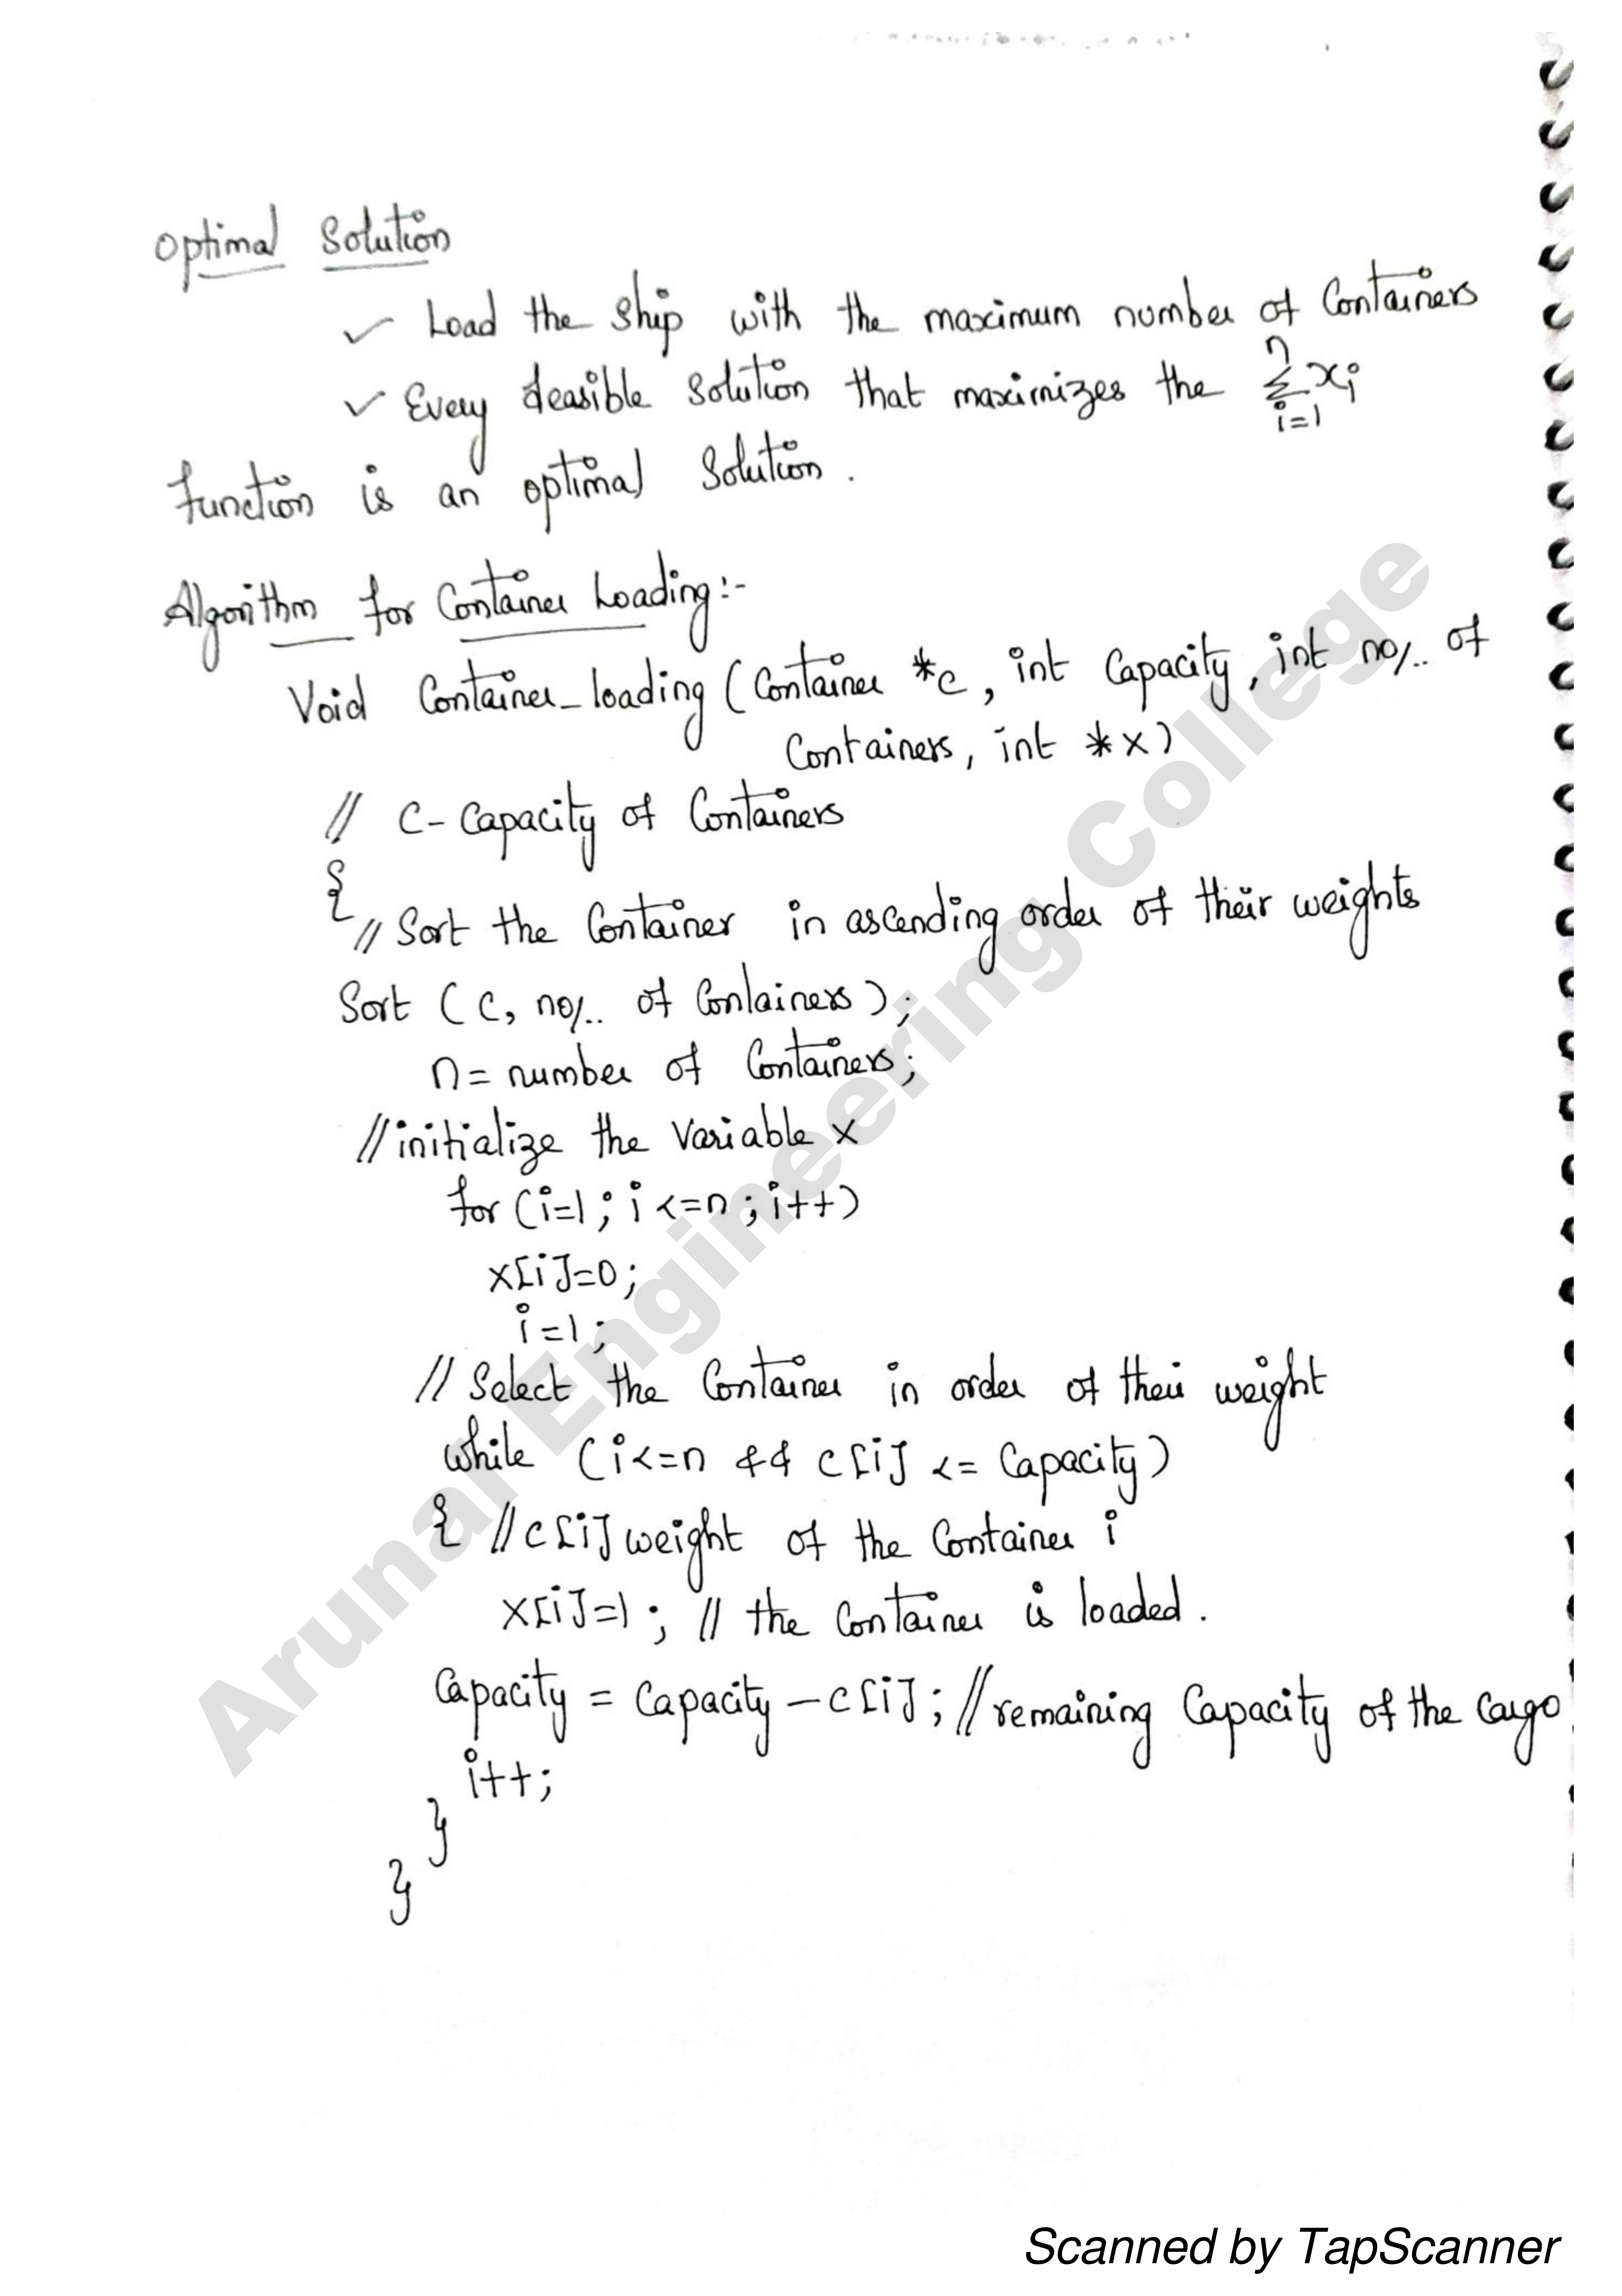 Optimal Solution
✓ Load the Ship with the maximum number of Containers
✓ Every feasible Solution that maximizes the n∑i=1 xi
function is an optimal Solution.
Algorithm for Container Loading:-
Void Container_loading (Container *c, int Capacity, int no/.. of
Containers, int *x)
// C - Capacity of Containers
{
// Sort the Container in ascending order of their weights
Sort (C, no/.. of Containers);
n = number of Containers;
//initialize the Variable x
for (i=1; i<=n; i++)
x[i]=0;
i=1;
// Select the Container in order of their weight
while (i<=n && c[i] <= Capacity)
{ //c[i] weight of the Container i
x[i]=1; // the Container is loaded.
Capacity = Capacity - c[i]; //remaining Capacity of the Cargo
i++;
}
}
Arunai Engineering College
Scanned by TapScanner